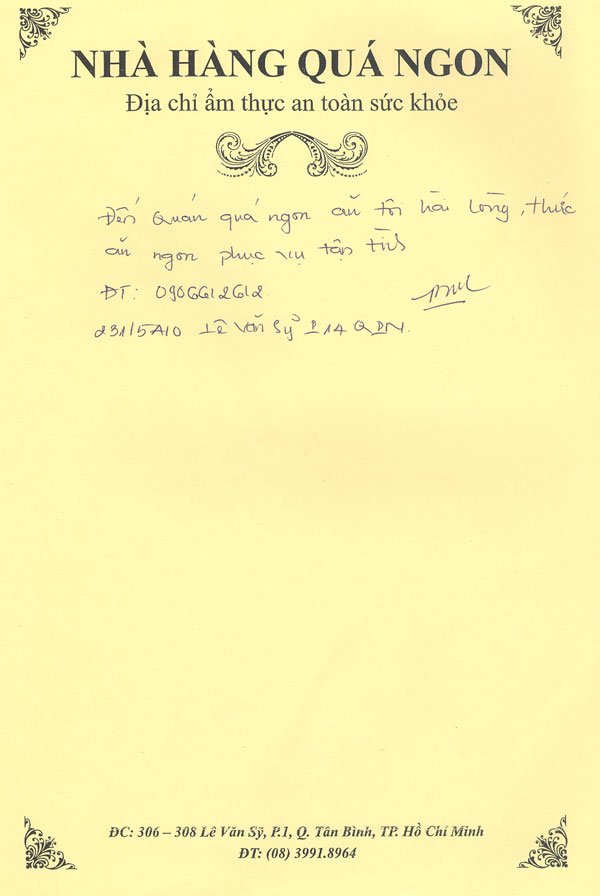 NHÀ HÀNG QUÁ NGON
Địa chỉ ẩm thực an toàn sức khỏe
Đến Quán quá ngon ăn tôi hài lòng, thức
ăn ngon phục vụ tận tình
ĐT: 0906612612
231/5A10 Lê Văn Sỹ P14 QPN.
ĐC: 306 – 308 Lê Văn Sỹ, P.1, Q. Tân Bình, TP. Hồ Chí Minh
ĐT: (08) 3991.8964